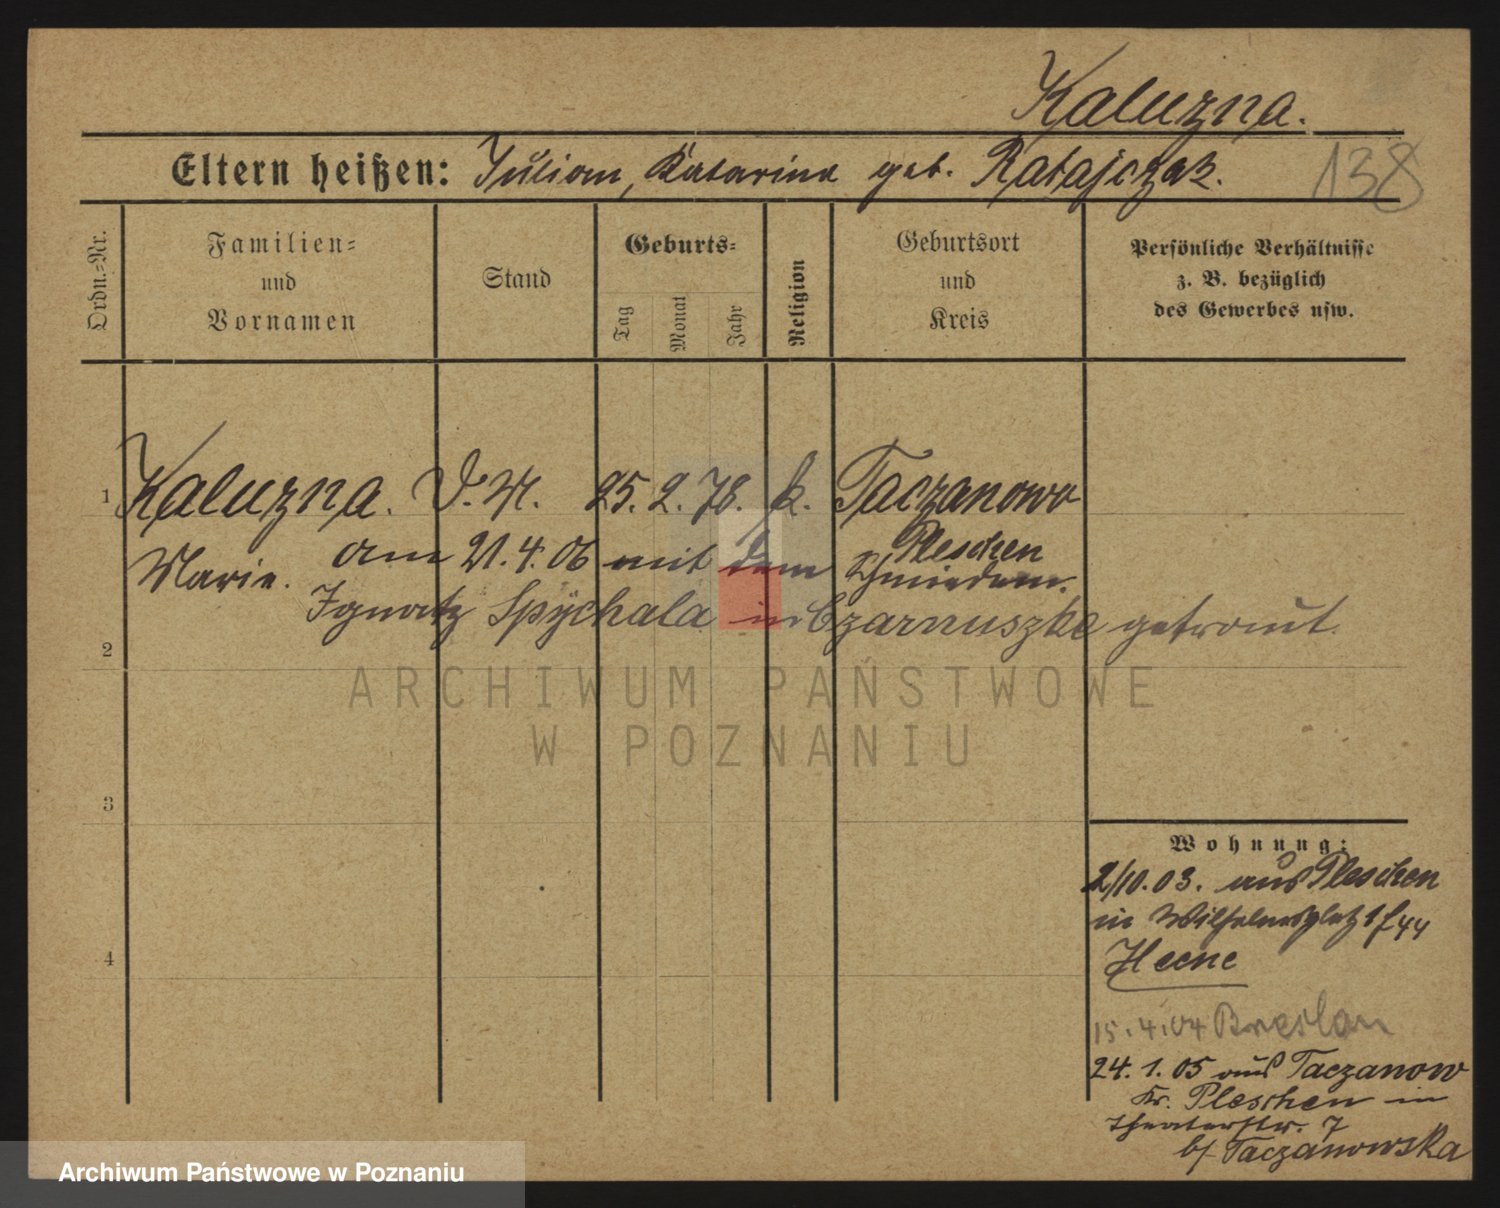 Kaluzna.
Eltern heißen: Julian, Katarina geb. Ratajczak.
138
Ordn.-Nr.
Familien-
und
Vornamen
Stand
Geburts-
Tag
Monat
Jahr
Religion
Geburtsort
und
Kreis
Persönliche Verhältnisse
z. B. bezüglich
des Gewerbes usw.
1 Kaluzna. 25. 2. 78. k. Taczanowo
Pleschen
Marie. am 21. 4. 06 mit dem
Ignatz Spychala in Czarnuszke getraut.
2
ARCHIWUM PAŃSTWOWE
W POZNANIU
3
4
Wohnung:
2/10. 03. aus Pleschen
in Wilhelmsplatz
Heene
15. 4. 04 Breslau
24. 1. 05 aus Taczanow
Kr. Pleschen in
Theaterstr. 7
b/ Taczanowska
Archiwum Państwowe w Poznaniu